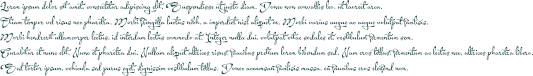 Lorem ipsum dolor sit amet, consectetur adipiscing elit. Suspendisse at justo diam. Donec non convallis leo, ut laoreet arcu.
Etiam tempor vel risus nec pharetra. Morbi fringilla luctus nibh, a imperdiet nisl aliquet in. Morbi varius augue ac augue volutpat facilisis.
Morbi hendrerit ullamcorper lectus, id interdum lectus commodo et. Integer nulla dui, volutpat vitae sodales et, vestibulum fermentum sem.
Curabitur at nunc elit. Nunc et pharetra dui. Nullam aliquet ultrices risus, faucibus pretium lorem bibendum sed. Nam eros tellus, fermentum ac lectus nec, ultrices pharetra libero.
Sed tortor ipsum, vehicula sed purus eget, dignissim vestibulum tellus. Donec accumsan facilisis massa, et faucibus eros eleifend non.